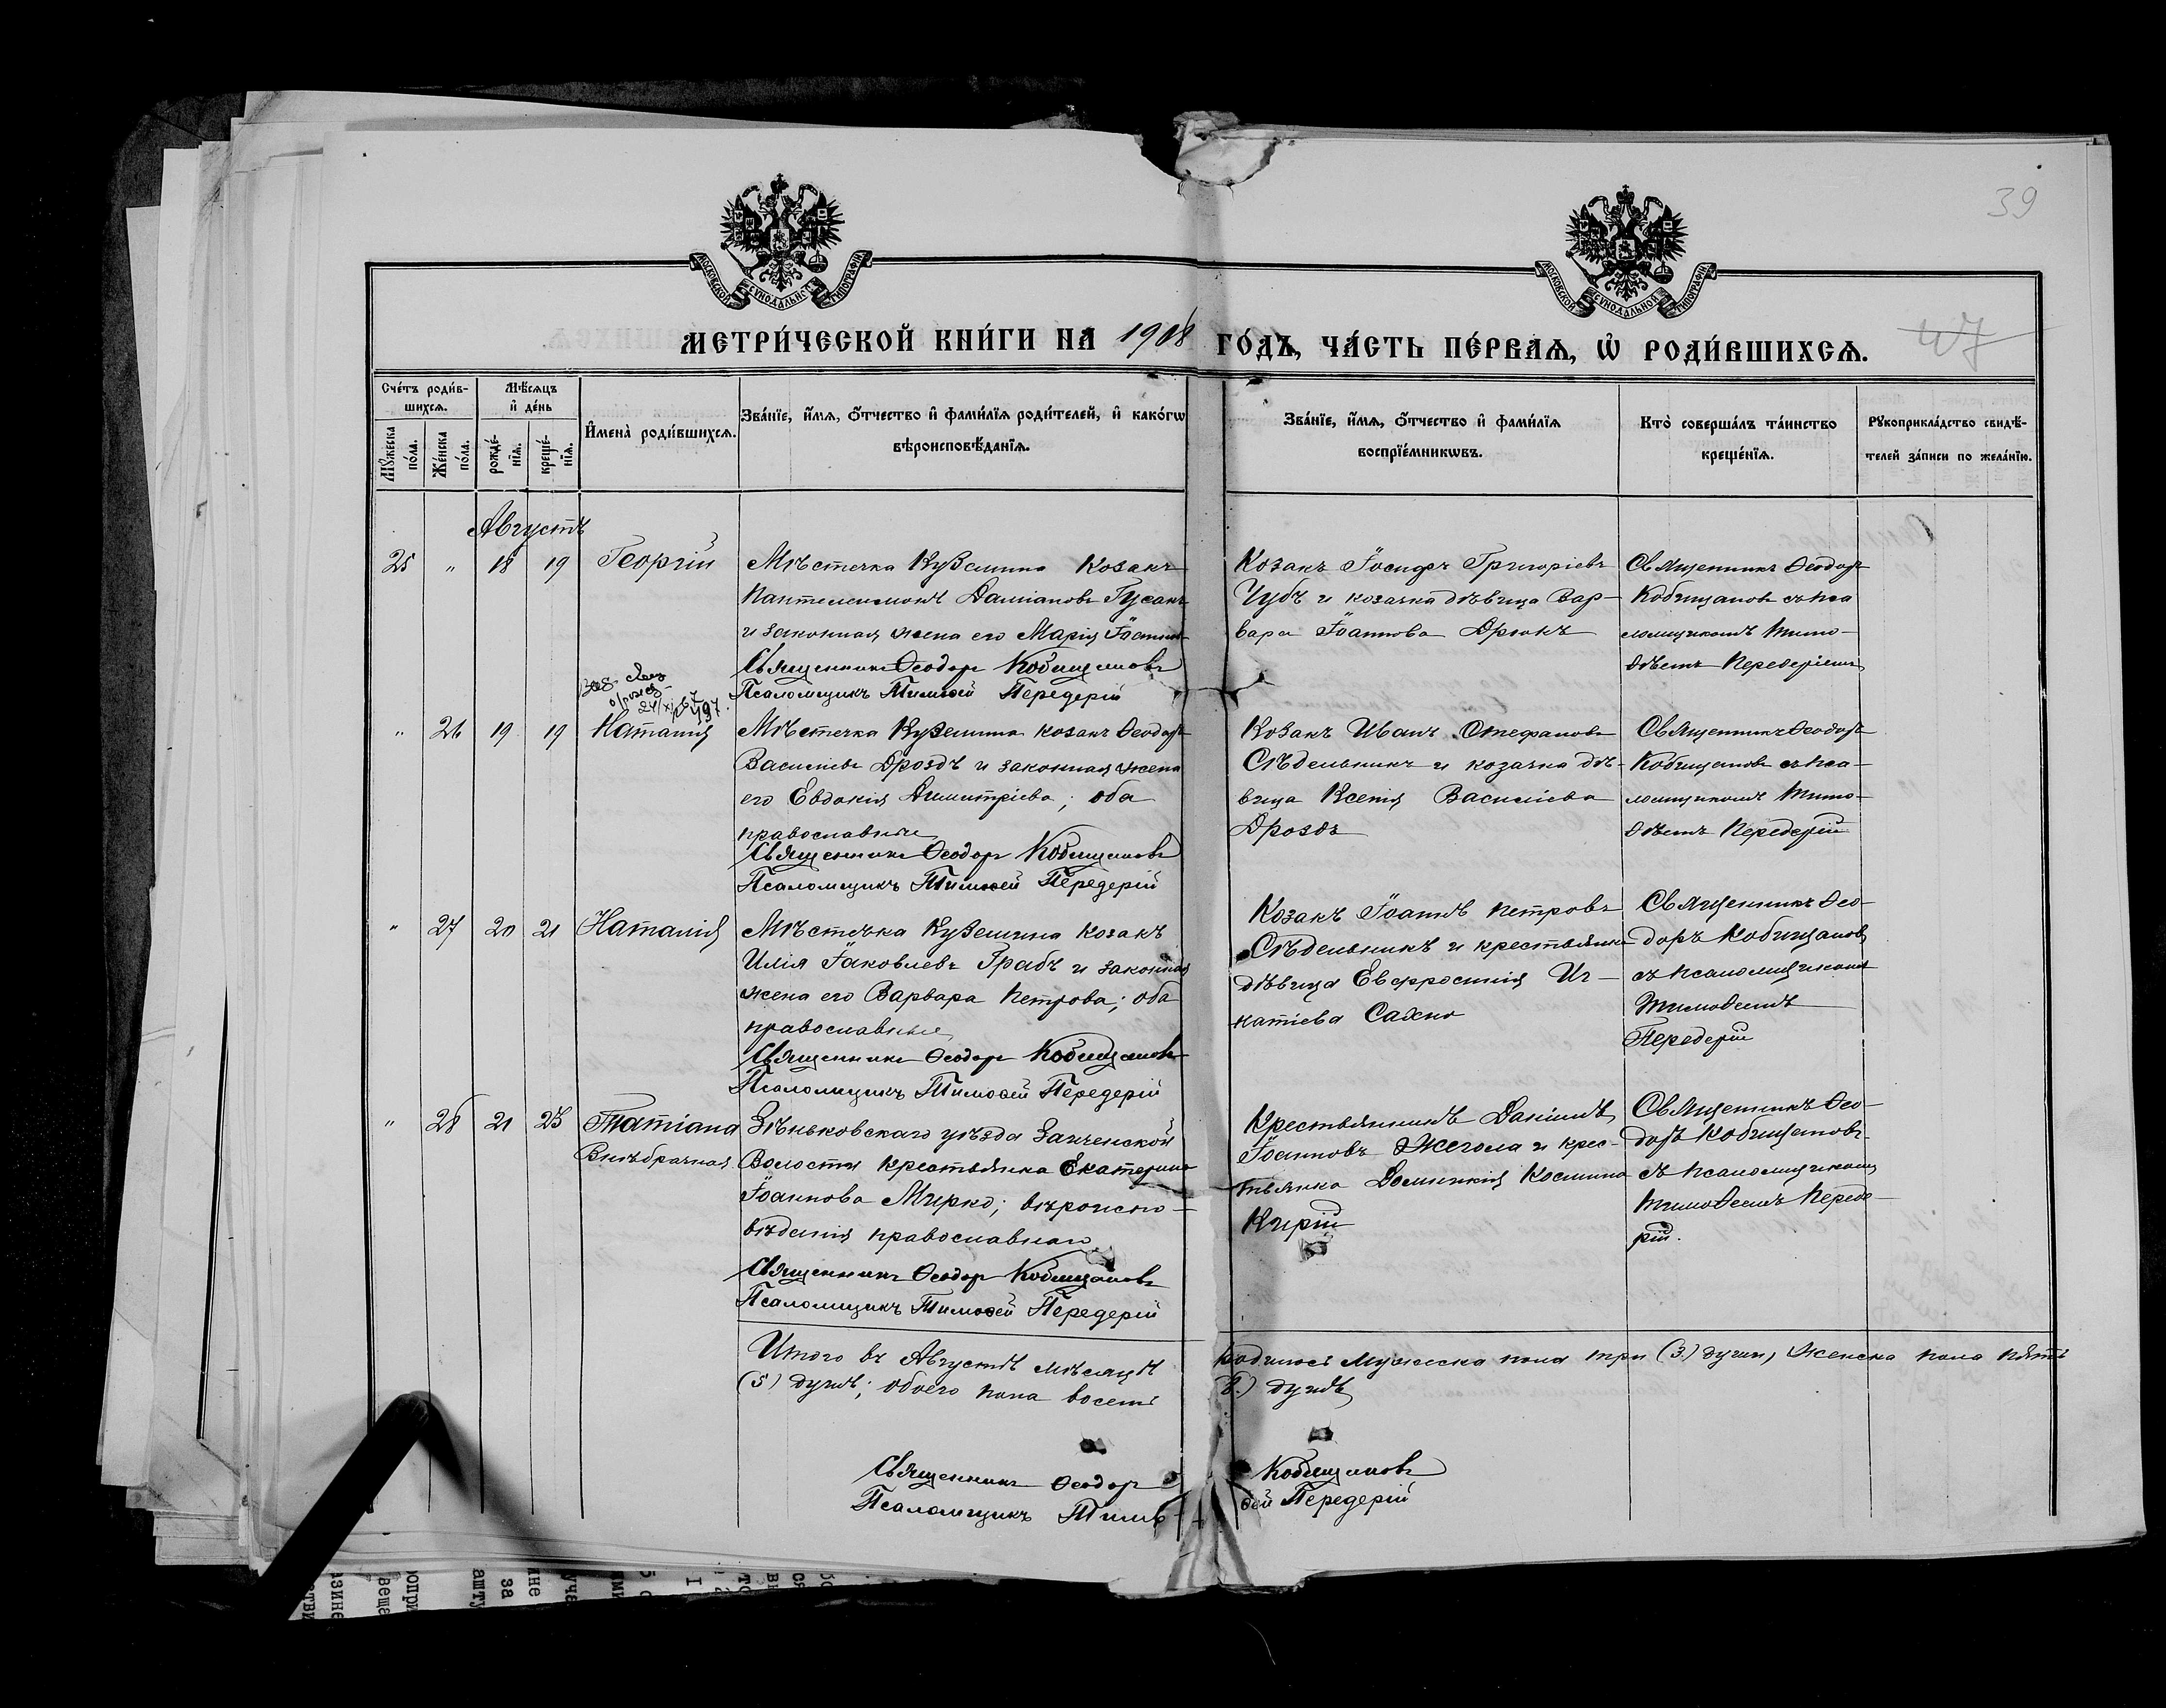 39
МОСКОВСКОЙ СѴНОДАЛЬНОЙ ТИПОГРАФІИ
МОСКОВСКОЙ СѴНОДАЛЬНОЙ ТИПОГРАФІИ
МЕТРИ́ЧЕСКОЙ КНИ́ГИ НА 1908 ГО́ДЪ, ЧА́СТЬ ПЕ́РВАѦ, Ѡ РОДИ́ВШИХСѦ.
47
Сче́тъ роди́в-
шихсѧ.
Мѣ́сѧцъ
и҆ де́нь
Мꙋ́жеска
по́ла.
Же́нска
по́ла.
рожде́-
нїѧ.
креще́-
нїѧ.
И҆мена̀ роди́вшихсѧ.
Зва́нїе, и҆́мѧ, ѻ҆́тчество и҆ фами́лїѧ роди́телей, и҆ како́гѡ
вѣроисповѣ́данїѧ.
Зва́нїе, и҆́мѧ, ѻ҆́тчество и҆ фами́лїѧ
воспрїе́мникѡвъ.
Кто̀ соверша́лъ та́инство
креще́нїѧ.
Рꙋкоприкла́дство свидѣ́-
телей за́писи по жела́нїю.
Августъ
25 " 18 19 Георгій
Мѣстечка Куземина Козакъ
Пантелеимонъ Даміановъ Гусакъ
и законная жена его Марія Іоаннов
Священникъ Ѳеодоръ Кобищановъ
Псаломщикъ Тимоѳей Передерій
Козакъ Іосифъ Григоріевъ
Чубъ и козачка дѣвица Вар-
вара Іоаннова Дрюкъ
Священникъ Ѳеодоръ
Кобищановъ съ пса
ломщикомъ Тимо-
ѳеемъ Передеріемъ
" 26 19 19 Наталія
Мѣстечка Куземина козакъ Ѳеодоръ
Василіевъ Дроздъ и законная жена
его Евдокія Димитріева; оба
православные
Священникъ Ѳеодоръ Кобищановъ
Псаломщикъ Тимоѳей Передерій
Козакъ Иванъ Стефановъ
Сѣдельникъ и козачка дѣ-
вица Ксенія Василіева
Дроздъ
Священникъ Ѳеодоръ
Кобищановъ съ пса-
ломщикомъ Тимо-
ѳеемъ Передерій
" 27 20 21 Наталія
Мѣстечка Куземина козакъ
Илія Іаковлевъ Грабъ и законная
жена его Варвара Петрова; оба
православные
Священникъ Ѳеодоръ Кобищановъ
Псаломщикъ Тимоѳей Передерій
Козакъ Іоаннъ Петровъ
Сѣдельникъ и крестьянка
дѣвица Евфросинія Иг-
натіева Сахно
Священникъ Ѳео-
доръ Кобищановъ
съ псаломщикомъ
Тимоѳеемъ
Передерій
" 28 21 23 Татіана
Внѣбрачная
Зѣньковскаго уѣзда
Волости крестьянка Екатерина
Іоаннова Мирко; вѣроиспо-
вѣданія православнаго
Священникъ Ѳеодоръ Кобищановъ
Псаломщикъ Тимоѳей Передерій
Крестьянинъ Даніилъ
Іоанновъ Жегола и крес-
тьянка Домникія Космина
Кирій
Священникъ Ѳео-
доръ Кобищановъ
съ псаломщикомъ
Тимоѳеемъ Переде-
рій.
Итого въ Августѣ мѣсяцѣ родилось мужеска пола три (3) души, женска пола пять
(5) душъ; обоего пола восемь 8.) душъ
Священникъ Ѳеодоръ Кобищановъ
Псаломщикъ Тимо-ѳей Передерій